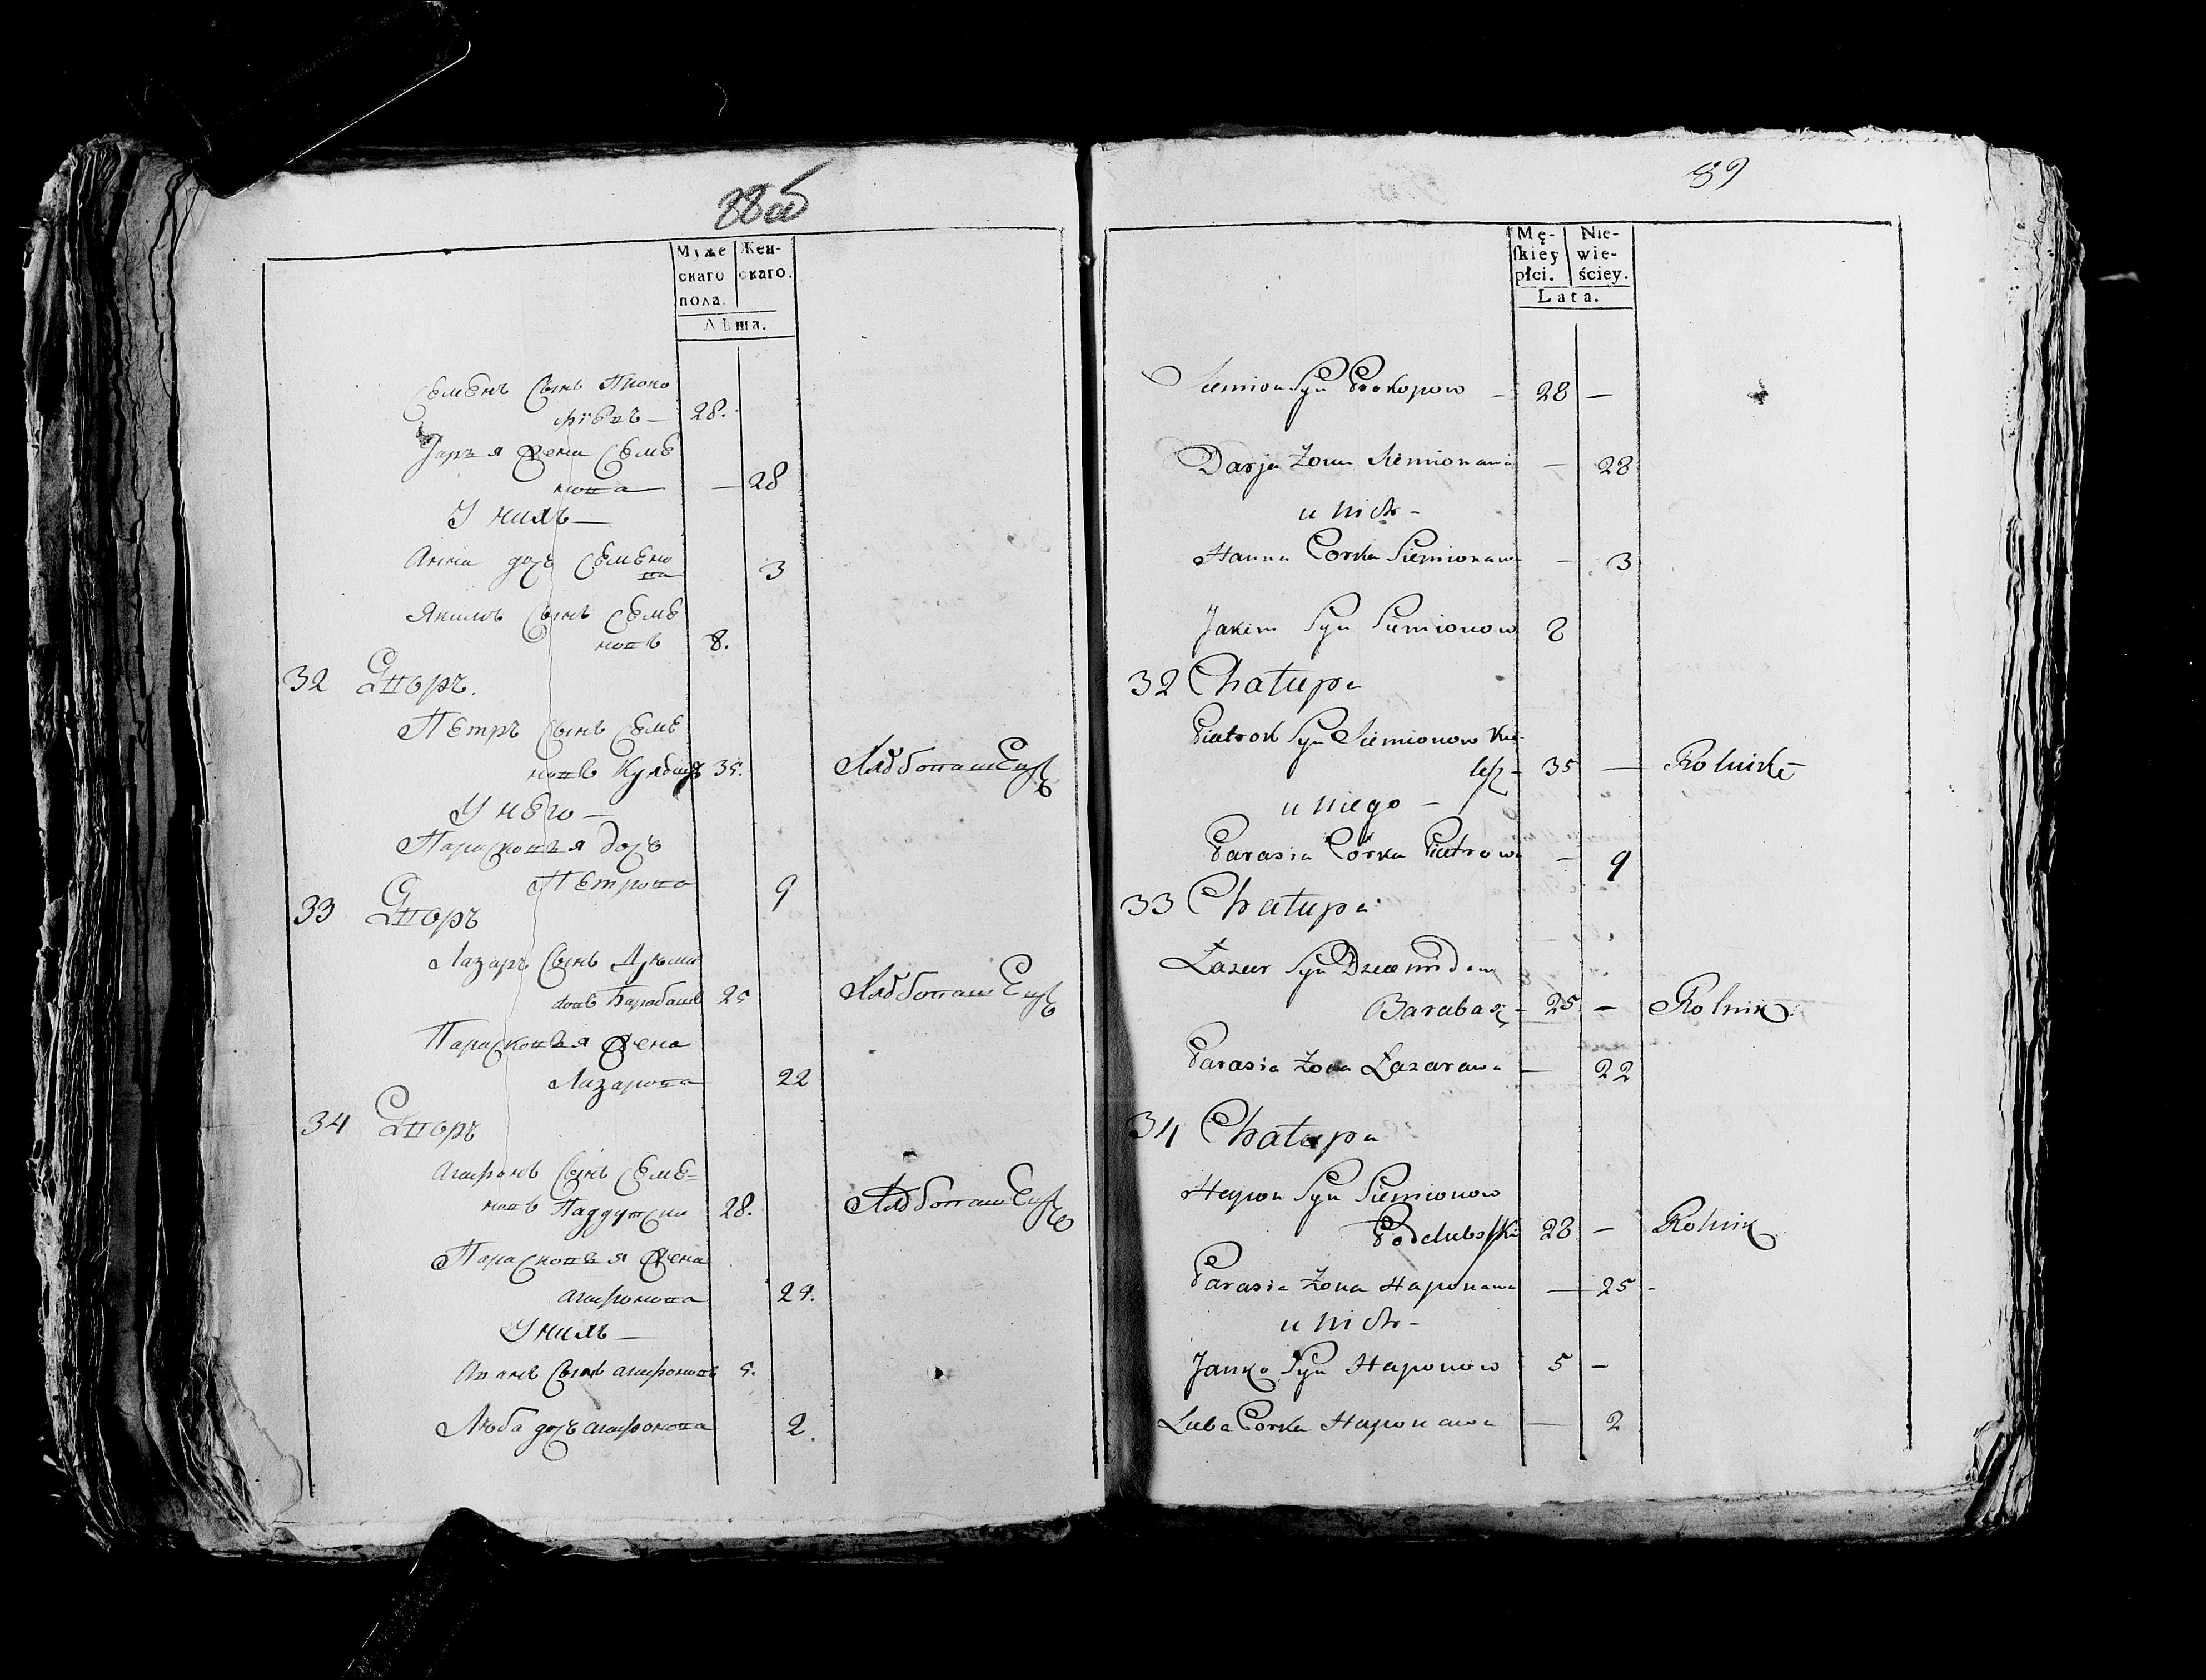 88об
Муже Жен-
скаго скаго.
пола.
Лѣта.
Семенъ Сынъ Проко
фіевъ — 28.
Дарья Жена Семе
нова — 28
У нихъ —
Анна дочь Семено
ва 3
Якимъ Сынъ Семе
новъ 8.
32 Дворъ.
Петръ Сынъ Семе
новъ Кулешъ 35. Хлѣбопашецъ
У него —
Парасковья дочь
Петрова 9
33 Дворъ
Лазаръ Сынъ Деми
довъ Барабашъ 25 Хлѣбопашецъ
Парасковья Жена
Лазарова 22
34 Дворъ
Агафонъ Сынъ Семе=
новъ 28. Хлѣбопашецъ
Парасковья Жена
Агафонова 24.
У нихъ —
Иванъ Сынъ Агафоновъ 5.
Люба дочь Агафонова 2.
89
Mę- Nie-
ſkiey wie-
płci. ściey.
Lata.
Siemion Syn Prokopow – 28 —
Darja Zona Siemionowa — 28
u nich –
Hanna Corka Siemionowa – 3
Jakim Syn Siemionow 8
32 Chałupa
Piatrok Syn Siemionow Ku-
lesz – 35 — Rolnik –
u niego –
Parasia Córka Piatrowa – 9
33 Chałupa
Łazar Syn Dziemidow
Barabasz – 25 – Rolnik
Parasia Zona Łazarawa — 22
34 Chałupa
Hapon Syn Siemionow
Podclubsſki 28 – Rolnik
Parasia Zona Haponawa — 25 –
u nich –
Janko Syn Haponow 5 –
Luba Corka Haponawa — 2